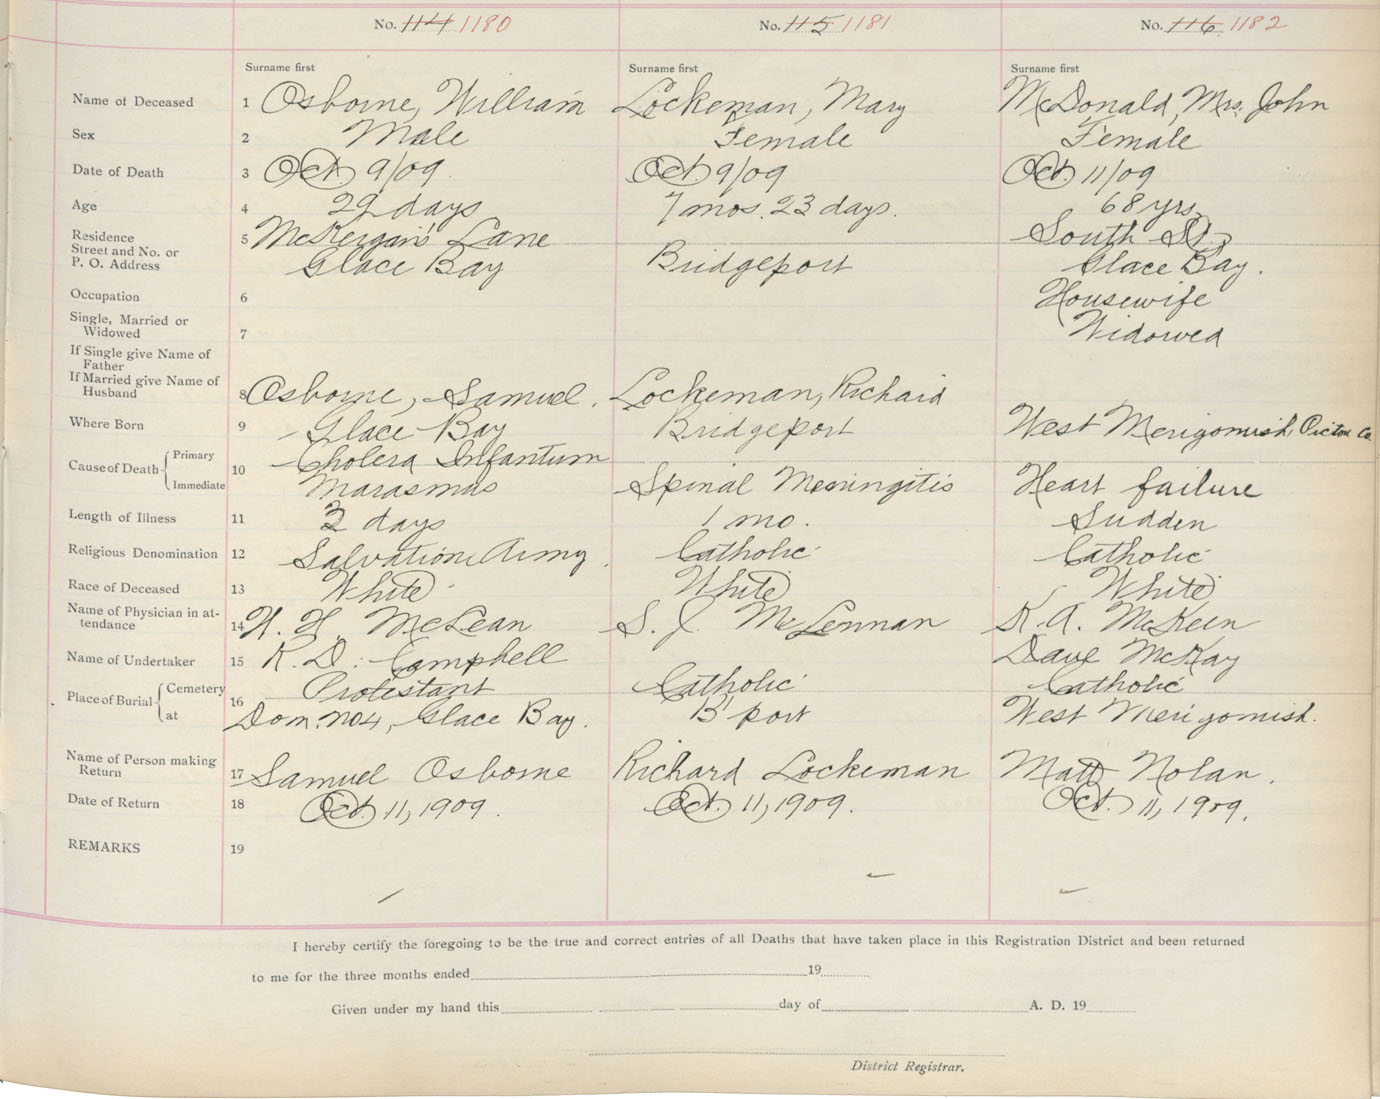 No. 114 1180 No. 115 1181 No. 116 1182
Surname first Surname first Surname first
Name of Deceased 1 Osborne, William Lockeman, Mary McDonald, Mrs. John
Sex 2 Male Female Female
Date of Death 3 Oct. 9/09. Oct. 9/09 Oct. 11/09
Age 4 29 days 7 mos. 23 days. 68 yrs.
Residence
Street and No. or 5 McKeigan's Lane South St.
P. O. Address Glace Bay Bridgeport Glace Bay.
Occupation 6 Housewife
Single, Married or
Widowed 7 Widowed
If Single give Name of
Father
If Married give Name of
Husband 8 Osborne, Samuel. Lockeman, Richard
Where Born 9 Glace Bay Bridgeport West Merigomish, Pictou Co.
Cause of Death { Primary 10 Cholera Infantum
Immediate Marasmas Spinal Meningitis Heart failure
Length of Illness 11 3 days 1 mo. Sudden
Religious Denomination 12 Salvation Army. Catholic Catholic
Race of Deceased 13 White White White
Name of Physician in at-
tendance 14 McLean S. J. McLennan K. A. McKeen
Name of Undertaker 15 K. D. Campbell Dave McKay
Place of Burial { Cemetery 16 Protestant Catholic Catholic
at Dom. No 4, Glace Bay. B'port West Merigomish.
Name of Person making
Return 17 Samuel Osborne Richard Lockeman Matt Nolan.
Date of Return 18 Oct. 11, 1909. Oct. 11, 1909. Oct. 11, 1909.
REMARKS 19
I hereby certify the foregoing to be the true and correct entries of all Deaths that have taken place in this Registration District and been returned
to me for the three months ended 19
Given under my hand this day of A. D. 19
District Registrar.